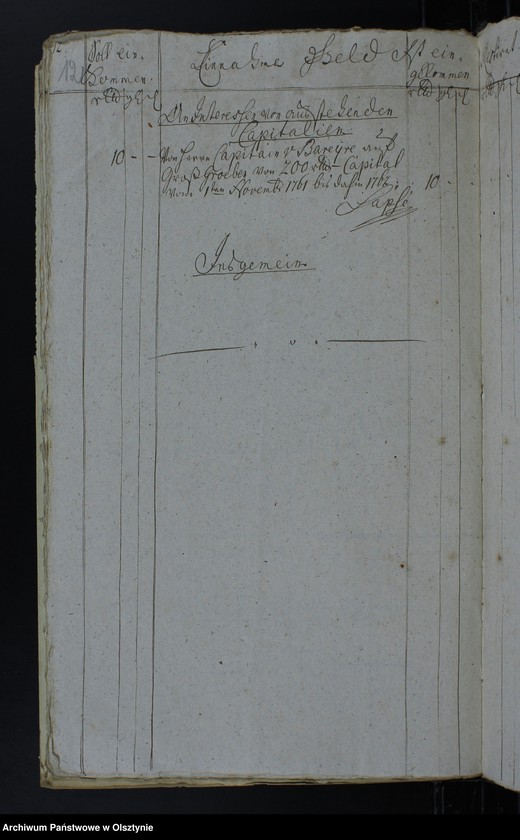 12
Soll ein-
kommen.
Einnahme Geld
Ist ein-
gekommen
An Interessen von ausstehenden
Capitalien
10 - - Von Herrn Capitain v Bareyre auf
Groß Groeben von 200 rthl Capital
vom 1ten Novembr 1761 bis dahin 1762. 10 -
Insgemein
- " -
Archiwum Państwowe w Olsztynie